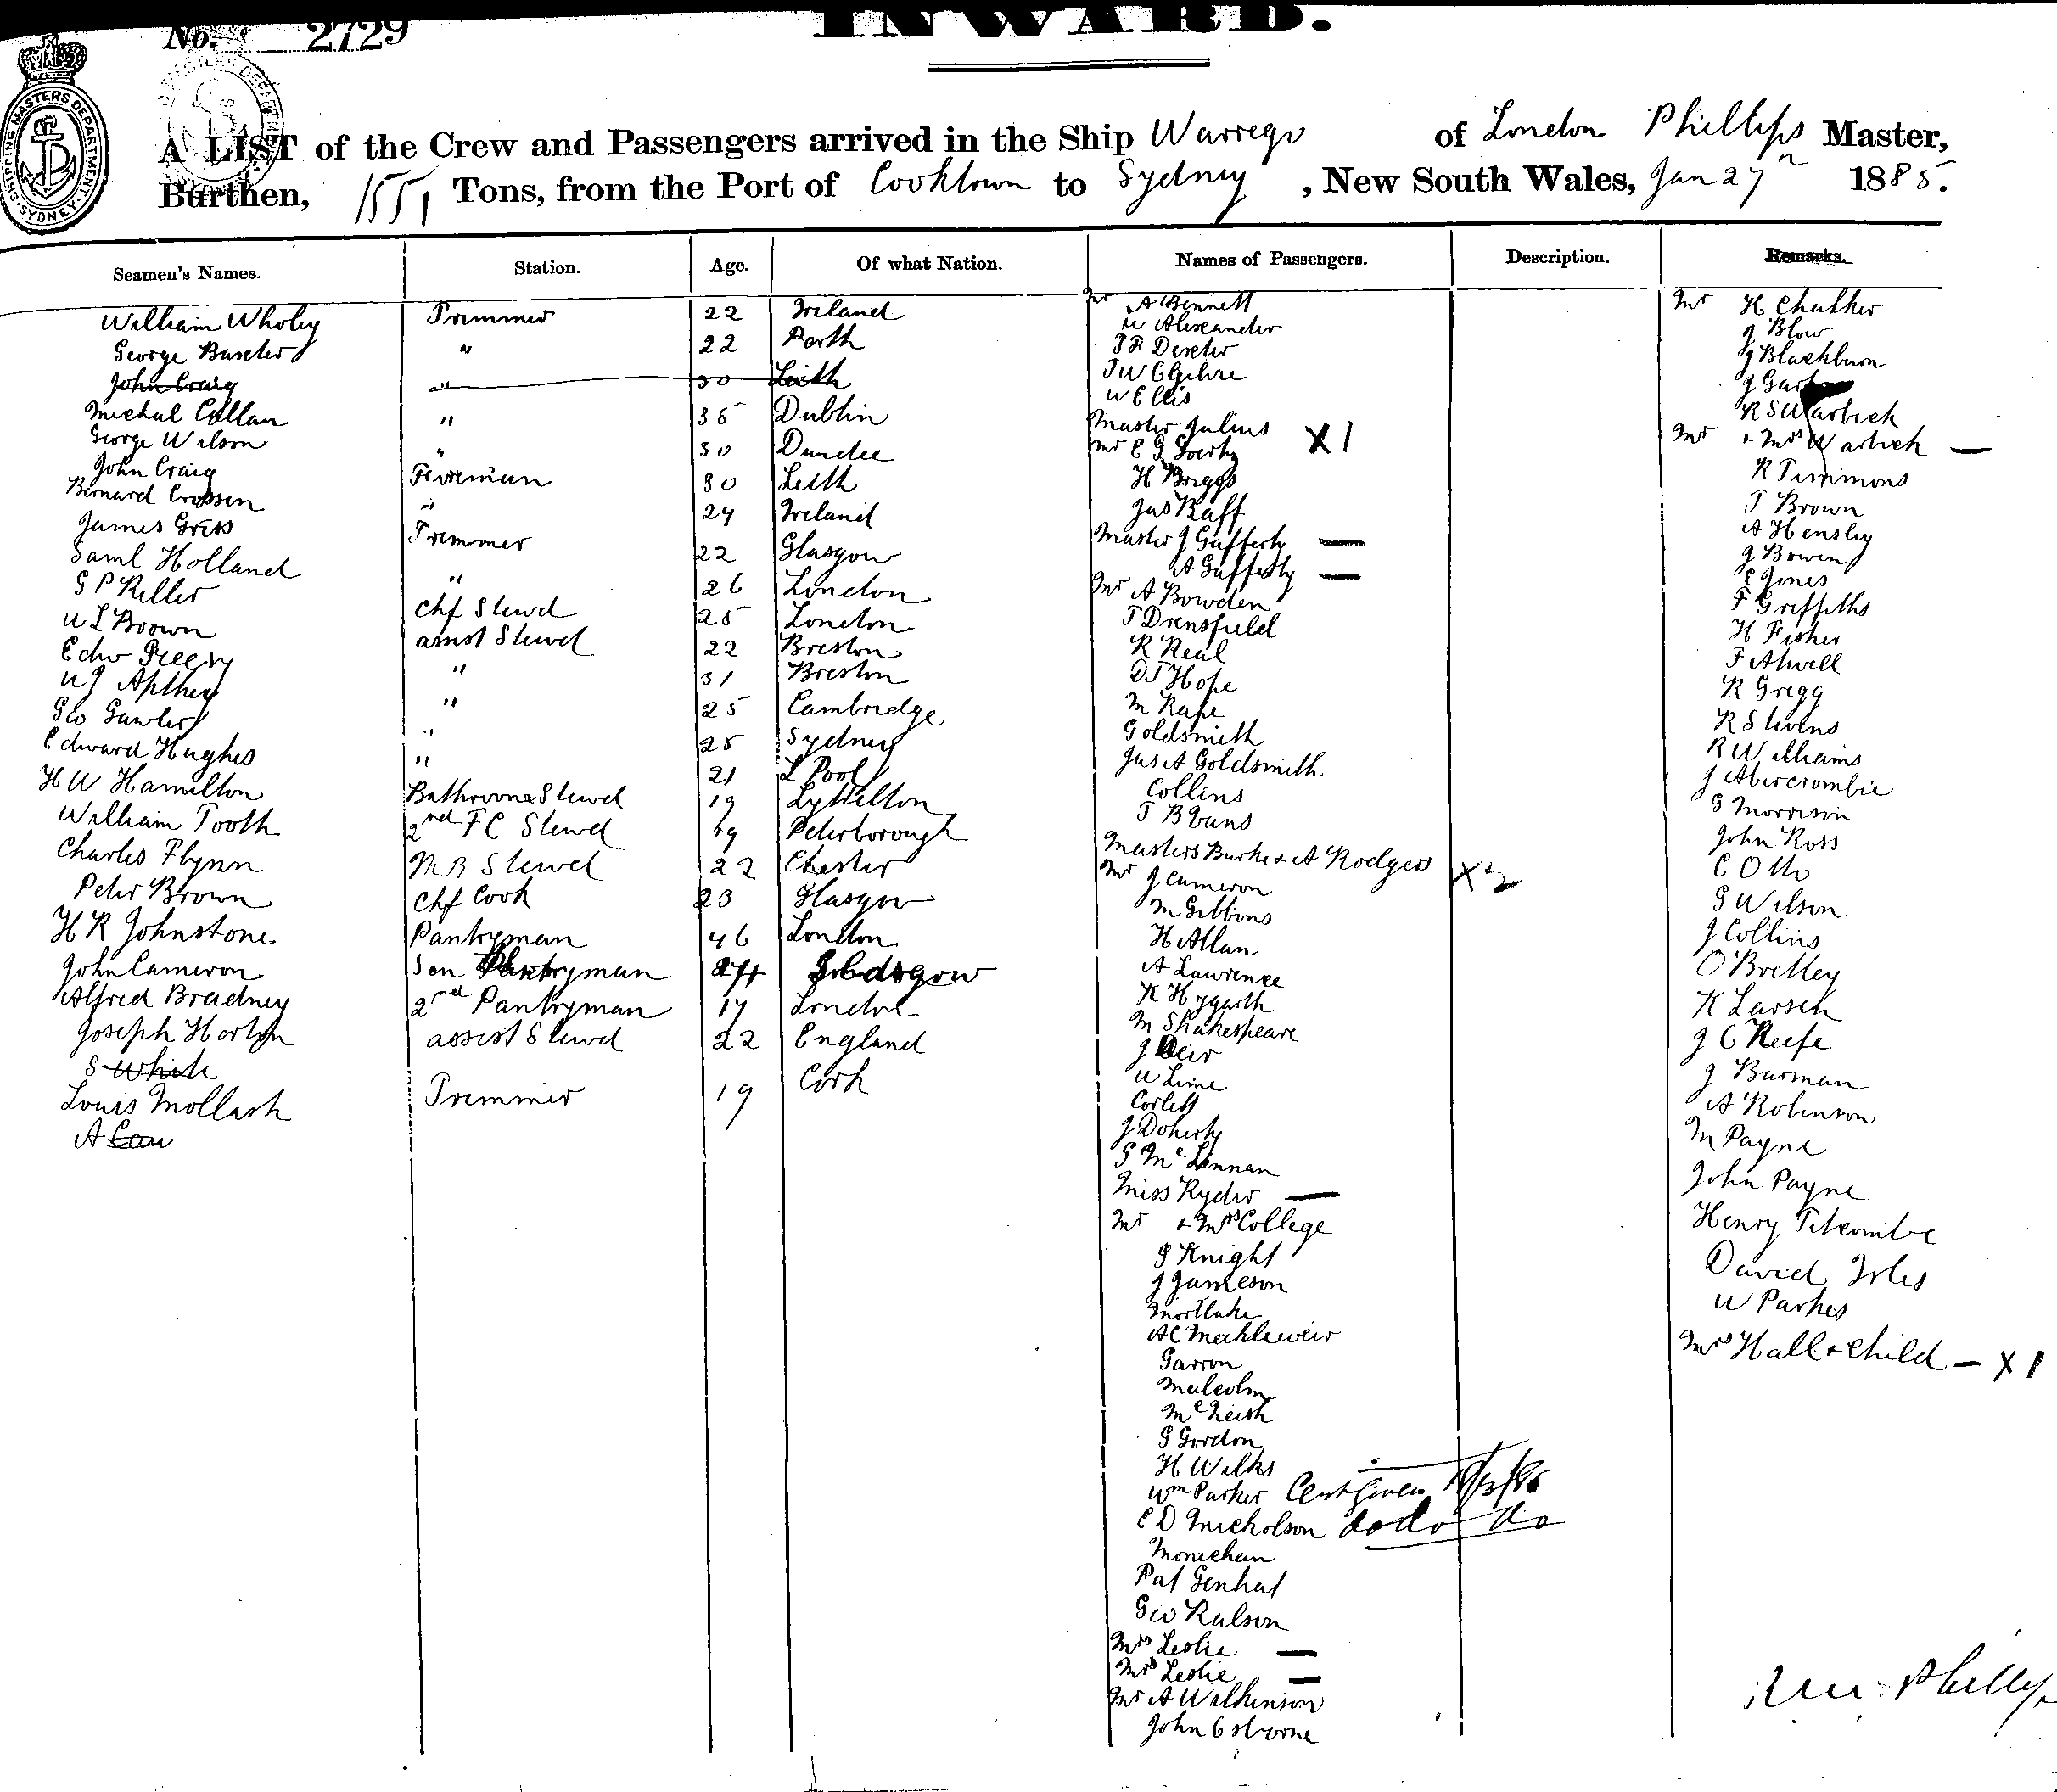 INWARD.
No. 2729
SHIPPING MASTERS DEPARTMENT SYDNEY
A LIST of the Crew and Passengers arrived in the Ship Warrego of London Phillips Master,
Burthen, 1551 Tons, from the Port of Cooktown to Sydney, New South Wales, Jan 27 1885.
Seamen's Names. Station. Age. Of what Nation. Names of Passengers. Description. Remarks.
William Wholey Trimmer 22 Ireland
George Baxter " 22 Perth
John Craig " 30 Leith
Michal Cullan " 35 Dublin
George Wilson " 30 Dundee
John Craig Fireman 30 Leith
Bernard Crossen " 24 Ireland
James Griss Trimmer 22 Glasgow
Saml Holland " 26 London
G P Keller Chf Stewd 25 London
W L Brown assist Stewd 22 Preston
Edw " 31 Preston
W J Apthey " 25 Cambridge
Geo Gawler " 25 Sydney
Edward Hughes " 21 L Pool
H W Hamilton Bathroom Stewd 19 Lyttelton
William Tooth 2nd F C Stewd 19 Peterborough
Charles Flynn M R Stewd 22 Chester
Peter Brown Chf Cook 23 Glasgow
H R Johnstone Pantryman 46 London
John Cameron Sen Pantryman 24 Glasgow
Alfred Bradney 2nd Pantryman 17 London
Joseph Horton assist Stewd 22 England
S White
Louis Mollash Trimmer 19 Cork
A
Mr A Bennett
W Alexander
T F Dexter
T W C
W Ellis
Master Julius X1
Mr E G
H Briggs
Jas Raff
Master J Gafferty —
A Gafferty —
Mr A Bowden
T Dransfield
R Real
D T Hope
M Rape
Goldsmith
Jas A Goldsmith
Collins
T B Evans
Masters Burke & A Rodgers X2
Mr J Cameron
M Gibbons
H Allan
A Lawrence
K Hygarth
M Shakespeare
J Weir
W Lime
Corlett
J Doherty
G McLennan
Miss Ryder —
Mr & Mrs College
G Knight
J Jameson
Mortlake
A C
Garron
Malcolm
McLeish
G Gordon
H Wilks
Wm Parker Cert given
E D Nicholson do do do
Monaghan
Pat
Geo Ralson
Mrs Leslie —
Mrs Leslie —
Mr A Wilkinson
John Osborne
Mr H Chalker
J Blow
J Blackburn
J
R S Warbick
Mr & Mrs Warbick —
R Timmons
T Brown
A Hensley
J Bowen
E Jones
F Griffiths
H Fisher
F Atwell
R Gregg
R Stevens
R Williams
J Abercrombie
G Morrison
John Ross
C Otto
G Wilson
J Collins
O'Brelley
K Larsen
J O Keefe
J Burman
A Robinson
M Payne
John Payne
Henry Titcombe
David Isles
W Parkes
Mrs Hall & Child — X1
Phillips